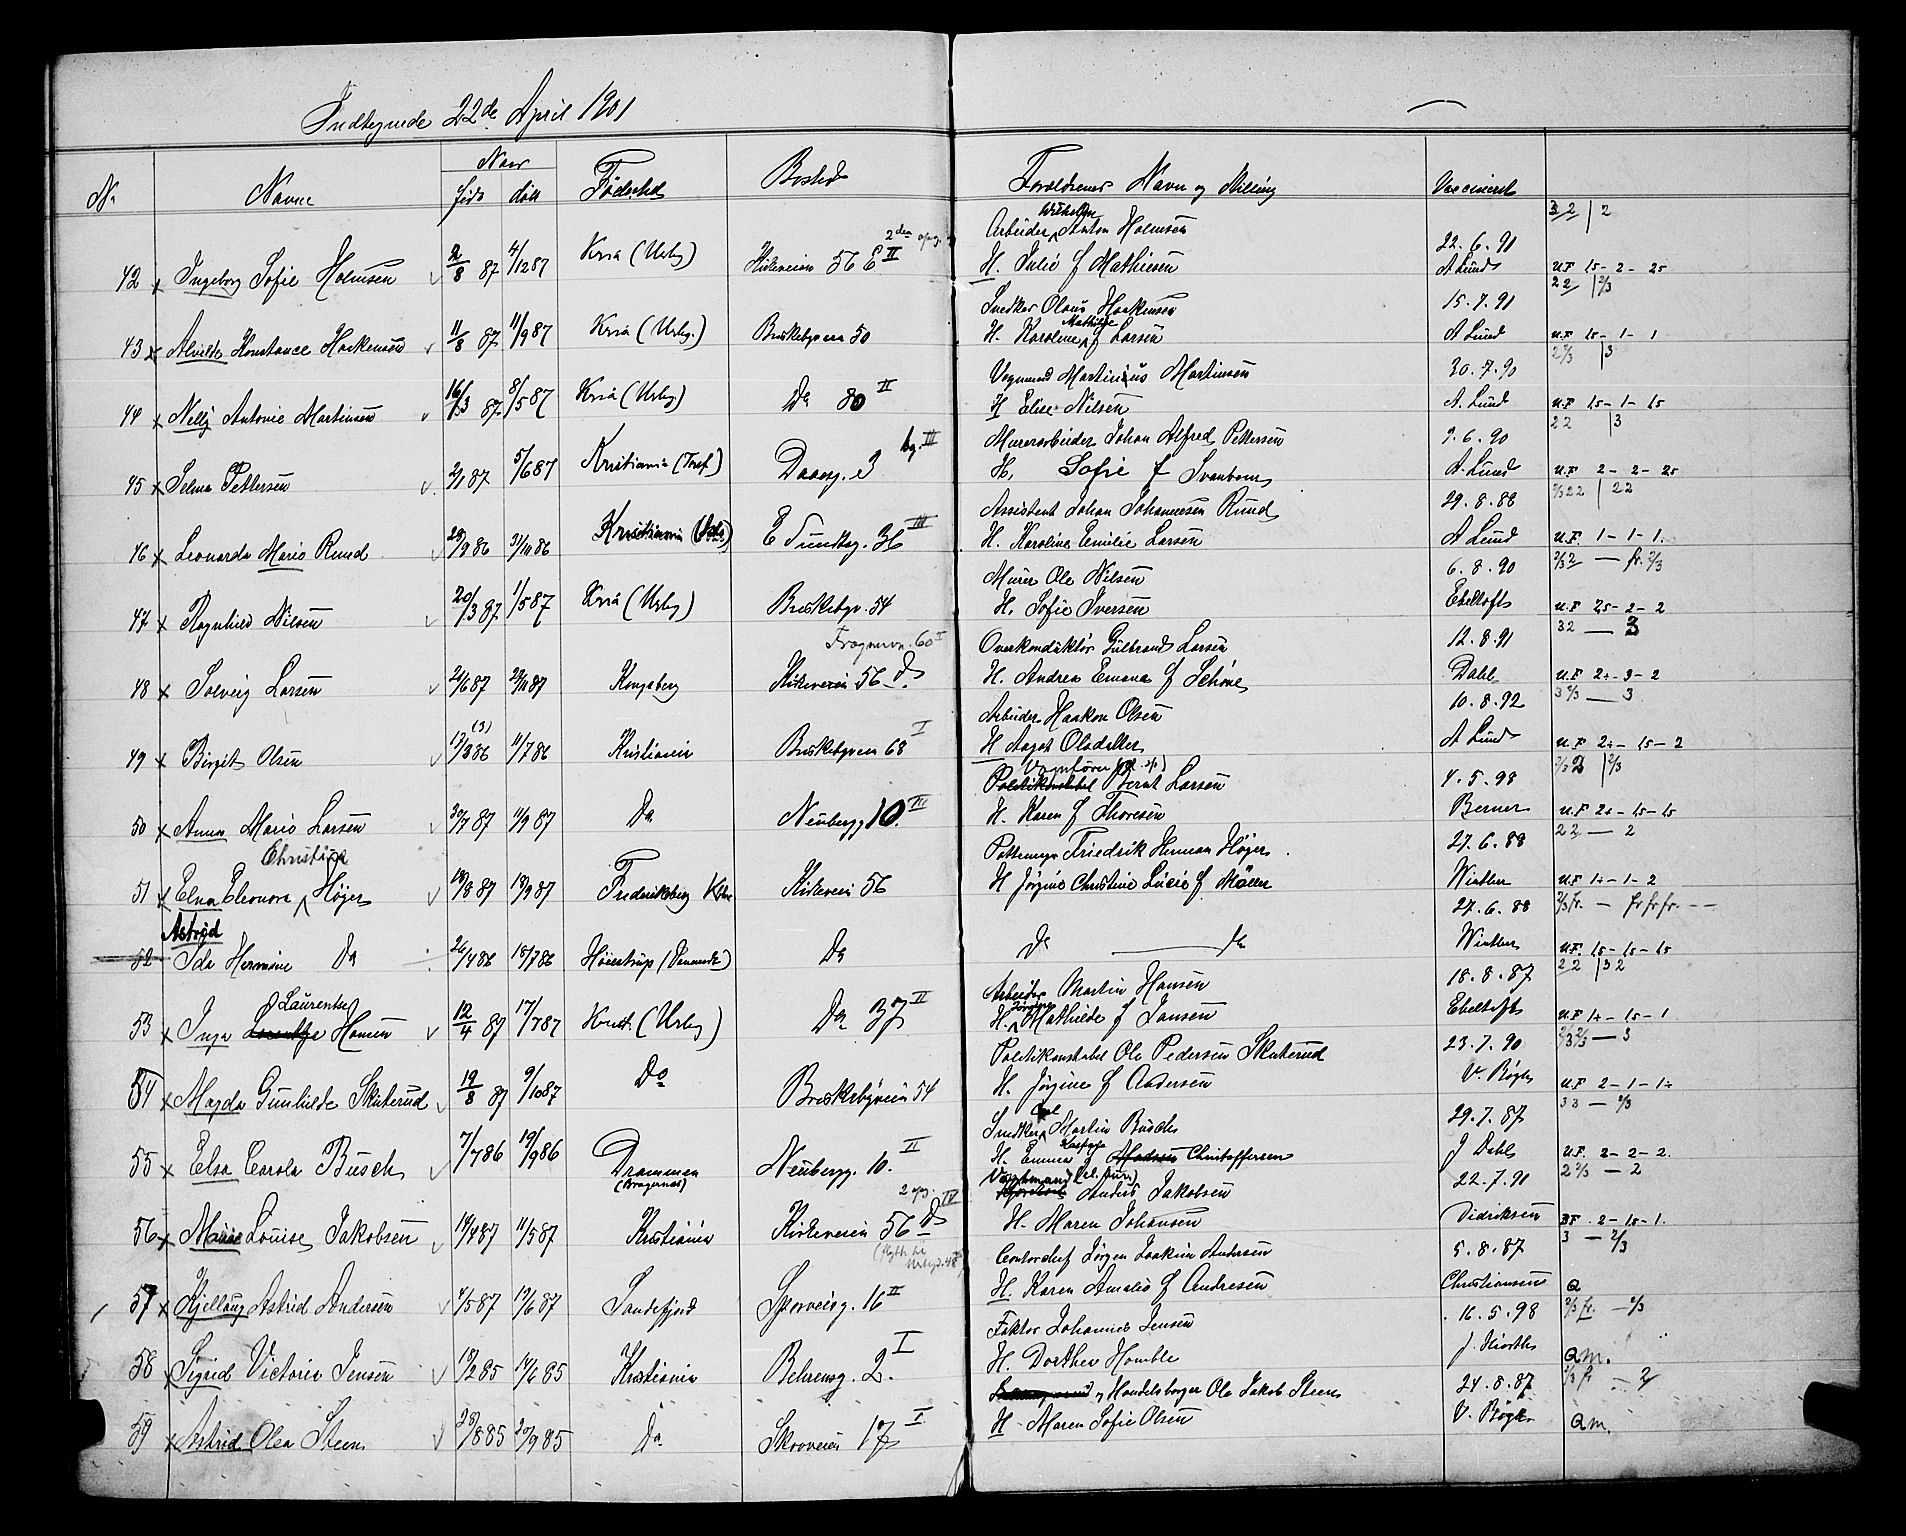 Indtegnede 22de April 1901
No Navne Naar Fødested Bosted Forældrenes Navn og Stilling Vaccineret
født døbt
42 Ingeborg Sofie Holmsen 2/8 87 4/12 87 Kria (Urbg) Kirkeveien 56 E II
2den opg.
Arbeider Anton Holmsen 22.6.91 32 | 2
H. Julie f Mathiesen A Lund U.F 15-2-25
43 Alvilde Konstance Haakensen 11/8 87 11/9 87 Kria (Urbg.) Briskebyveien 50
Snedker Olaus Haakensen 15.7.91 22 | 2/3
Mathilde
H. Karoline f Larsen A Lund U.F 15-1-1
44 Nelly Antonie Martinsen 16/3 87 8/5 87 Kria (Urbg) Do 80 II
Vognmand Martinius Martinsen 30.7.90 2 2/3 | 3
H Elise Nilsen A. Lund U.F 15-1-15
45 Selma Pettersen 2/1 87 5/6 87 Kristiania Daasg. 3 bg. III
Murerarbeider Johan Alfred Pettersen 9.6.90 22 | 3
H. Sofie f Svanbom A. Lund U.F 2-2-25
46 Leonarda Marie Rund 28/9 86 31/10 86 Kristiania E Sundtsg. 36 III
Assistent Johan Johannesen Rund 29.8.88 2/3 22 | 22
H. Karoline Emilie Larsen A Lund U.F 1-1-1.
47 Ragnhild Nilsen 20/3 87 1/5 87 Kria (Urbg) Briskebyv. 54
Murer Ole Nilsen 6.8.90 2/3 2 — fr. 2/3
H. Sofie Iversen Ebeltoft U.F 25-2-2
48 Solveig Larsen 21/6 87 Kongsberg Kirkeveien 56 D
Frognerv. 60 I
Overkonduktør Gulbrand Larsen 12.8.91 32 — 3
H. Andrea Emma f Schøne Dahl U.F 2+-3-2
49 Birgit Olsen 13/3 86 (3) 11/7 86 Kristiania Briskebyveien 68 I
Arbeider Haakon Olsen 10.8.92 3 2/3 — 3
H Aagot Olsdatter A Lund U.F 2+-15-2
50 Anna Marie Larsen 30/7 87 11/9 87 Do Neubergg 10 III
Vognfører
Politikonstabel Bernt Larsen 4.5.98 2/3 2 | 2/3
H. Karen f Thoresen Berner U.F 2+-15-15
51 Elna Eleonora Høyer 18/8 87 18/9 87 Frederiksberg Kbhn Kirkevei 56
Christine
Friedrik Herman Høyer 27.6.88 22 — 2
H Jørgine Christine Lucie f Møller Winther U.F 1+-1-2
Astrid
52 Ida Hermine Do 26/4 86 18/7 86 Høierstrup (Danmark) Do
Do — Do 27.6.88 2/3 fr. — fr fr fr. --
Winther U.F. 15-15-15
Laurentze
53 Inga Hansen 12/4 87 17/7 87 Krist. (Urbg) Do 37 II
Arbeider Martin Hansen 18.8.87 22 | 32
H. Mathilde f Jansen Ebeltoft U.F 1+-15-1
54 Magda Gunhilde Skaterud 19/8 87 9/10 87 Do Briskebyveien 54
Politikonstabel Ole Pedersen Skaterud 23.7.90 2/3 2/3 — 3
H. Jørgine f Andersen V. Bøgh U.F 2-1-1+
55 Elsa Carola Busch 7/7 86 19/9 86 Drammen Neubergg. 10. II
(Bragernes)
Carl
Snedker Martin Busch 29.7.87 33 — 2/3
H. Emma f Madsen Christoffersen J Dahl U.F. 2-2-2.
56 Marie Louise Jakobsen 14/4 87 11/5 87 Kristiania Kirkeveien 56 D IV
2 opg.
(flyttet til
Vagtmand
Anders Jakobsen 22.7.91 2 2/3 — 2
H. Maren Johansen Didriksen BF. 2-15-1.
57 Kjellaug Astrid Andersen 4/5 87 19/6 87 Sandefjord Sporveisg. 16 II
Contorchef Jørgen Joakim Andersen 5.8.87 3 — 2/3
H. Karen Amalie f Andresen Christiansen Q
58 Sigrid Victoria Jensen 18/2 85 14/6 85 Kristiania Behrensg. 2. I
Faktor Johannes Jensen 16.5.98 2/3 fr. — 2/3
H. Dorthea Homble J. Hiorth Qm.
59 Astrid Olea Steen 28/8 85 20/9 85 Do Skovveien 17 I
Handelsborger Ole Jakob Steen 24.8.87 2/3 fr — 2
H Maren Sofie Olsen V. Bøgh Qm.